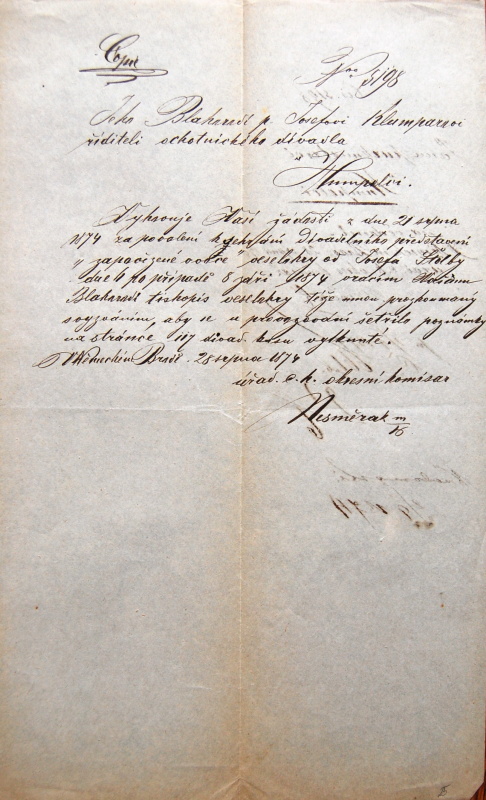 Copie
Nro 5198
Jeho Blahorodí p. Josefovi Klamparovi
řiditeli ochotnického divadla
v
Humpolci.
Vyhovuje Vaší žádosti z dne 21 srpna
1874 za povolení k divadelního představení
"zapovězené ovoce" veselohry od Josefa Štolby
dne 6 po případě 8 září 1874 vracím
Blahorodí tiskopis veselohry téže mnou
aby se u provozování šetřilo poznámky
na stránce 117 divad. kusu vytknuté.
V Německém Brodě. 28 srpna 1874
úřad. c. k. okresní komisar
Nesměrák m/p